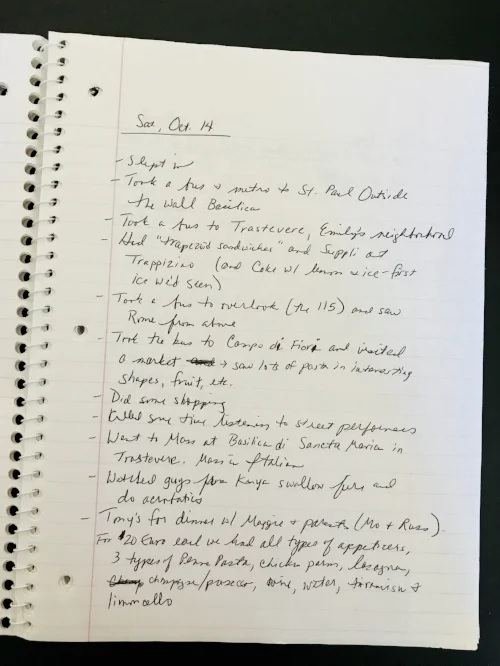 Sat, Oct. 14
- Slept in
- Took a bus & metro to St. Paul Outside
the Wall Basilica
- Took a bus to Trastevere, Emily's neighborhood
- Had "trapezoid sandwiches" and Suppli at
Trappizino (and Coke w/ lemon & ice - first
ice we'd seen)
- Took a bus to overlook (the 115) and saw
Rome from above
- Took the bus to Campo di Fiori and visited
a market → saw lots of pasta in interesting
shapes, fruit, etc.
- Did some shopping
- Killed some time listening to street performers
- Went to Mass at Basilica di Sancta Maria in
Trastevere. Mass in Italian
- Watched guys from Kenya swallow fire and
do acrobatics
- Tony's for dinner w/ Maggie & parents (Mo & Russ).
For $20 Euro each we had all types of appetizers,
3 types of Penne Pasta, chicken parm, lasagna,
champagne/prosecco, wine, water, tiramisu &
limoncello